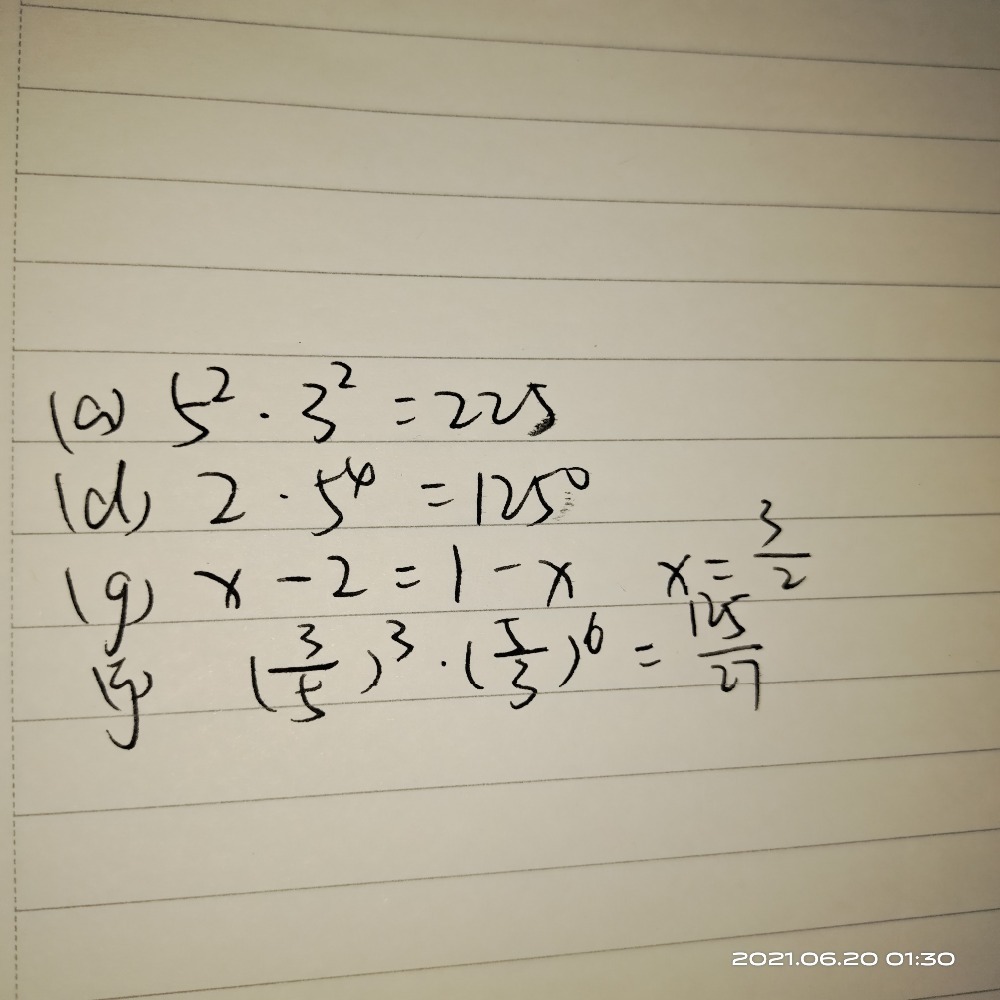 (a) 5² · 3² = 225
(d) 2 · 5⁴ = 1250
(g) x - 2 = 1 - x x = 3/2
(j) (3/5)³ · (5/3)⁶ = 125/27
2021.06.20 01:30